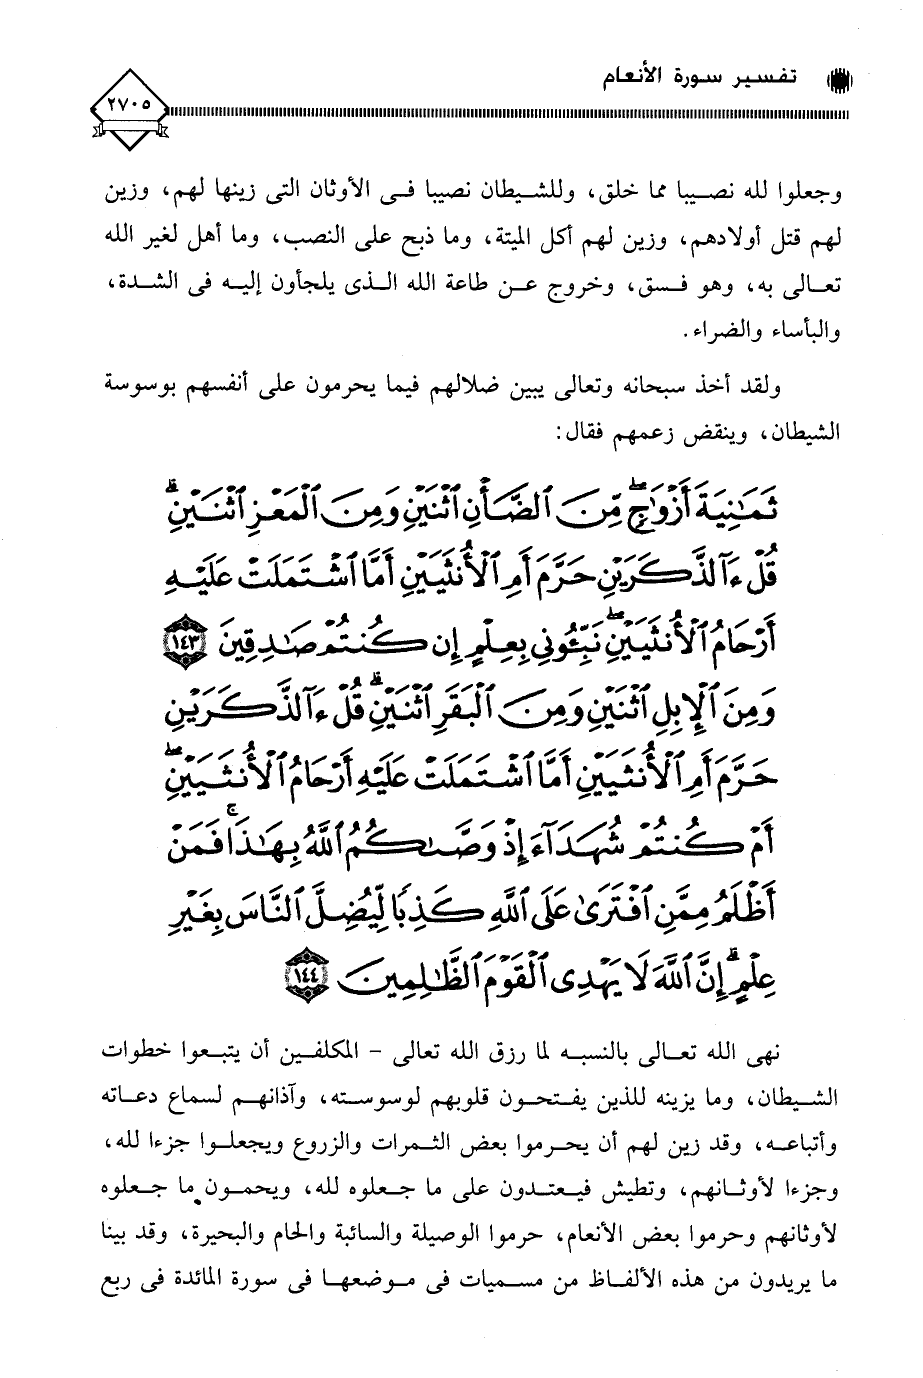 تفسير سورة الأنعام
٢٧٠٥
وجعلوا لله نصيبا مما خلق، وللشيطان نصيبا فى الأوثان التى زينها لهم، وزين
لهم قتل أولادهم، وزين لهم أكل الميتة، وما ذبح على النصب، وما أهل لغير الله
تعالى به، وهو فسق، وخروج عن طاعة الله الذى يلجأون إليه فى الشدة،
والبأساء والضراء.
ولقد أخذ سبحانه وتعالى يبين ضلالهم فيما يحرمون على أنفسهم بوسوسة
الشيطان، وينقض زعمهم فقال:
ثَمَٰنِيَةَ أَزْوَٰجٍۖ مِّنَ ٱلضَّأْنِ ٱثْنَيْنِ وَمِنَ ٱلْمَعْزِ ٱثْنَيْنِۗ
قُلْ ءَآلذَّكَرَيْنِ حَرَّمَ أَمِ ٱلْأُنثَيَيْنِ أَمَّا ٱشْتَمَلَتْ عَلَيْهِ
أَرْحَامُ ٱلْأُنثَيَيْنِۖ نَبِّـُٔونِى بِعِلْمٍ إِن كُنتُمْ صَٰدِقِينَ ١٤٣
وَمِنَ ٱلْإِبِلِ ٱثْنَيْنِ وَمِنَ ٱلْبَقَرِ ٱثْنَيْنِۗ قُلْ ءَآلذَّكَرَيْنِ
حَرَّمَ أَمِ ٱلْأُنثَيَيْنِ أَمَّا ٱشْتَمَلَتْ عَلَيْهِ أَرْحَامُ ٱلْأُنثَيَيْنِۖ
أَمْ كُنتُمْ شُهَدَآءَ إِذْ وَصَّىٰكُمُ ٱللَّهُ بِهَٰذَاۚ فَمَنْ
أَظْلَمُ مِمَّنِ ٱفْتَرَىٰ عَلَى ٱللَّهِ كَذِبًا لِّيُضِلَّ ٱلنَّاسَ بِغَيْرِ
عِلْمٍۗ إِنَّ ٱللَّهَ لَا يَهْدِى ٱلْقَوْمَ ٱلظَّٰلِمِينَ ١٤٤
نهى الله تعالى بالنسبه لما رزق الله تعالى - المكلفين أن يتبعوا خطوات
الشيطان، وما يزينه للذين يفتحون قلوبهم لوسوسته، وآذانهم لسماع دعاته
وأتباعه، وقد زين لهم أن يحرموا بعض الثمرات والزروع ويجعلوا جزءا لله،
وجزءا لأوثانهم، وتطيش فيعتدون على ما جعلوه لله، ويحمون ما جعلوه
لأوثانهم وحرموا بعض الأنعام، حرموا الوصيلة والسائبة والحام والبحيرة، وقد بينا
ما يريدون من هذه الألفاظ من مسميات فى موضعها فى سورة المائدة فى ربع